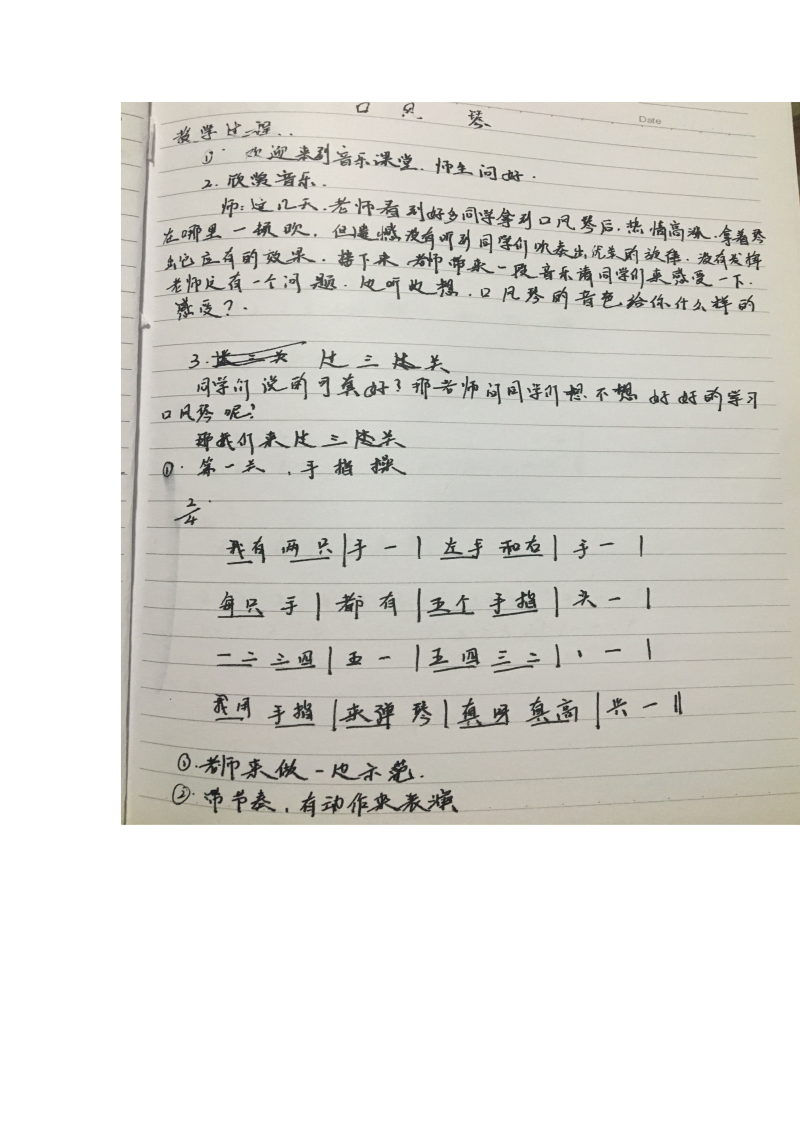 口风琴
Date
教学过程..
1. 欢迎来到音乐课堂.师生问好.
2. 欣赏音乐.
师:这几天.老师看到好多同学拿到口风琴后.热情高涨.拿着琴
在哪里一顿吹.但遗憾没有听到同学们吹奏出优美的旋律.没有发挥
出它应有的效果.接下来老师带来一段音乐请同学们来感受一下.
老师还有一个问题.边听边想.口风琴的音色给你什么样的
感受?.
3. 过三关
同学们说的可真好?那老师问同学们想不想好好的学习
口风琴呢?
那我们来过三关
①.第一关.手指操
2/4
我有两只|手一|左手和右|手一|
每只手|都有|五个手指|头一|
一二三四|五一|五四三二|、一|
我用手指|来弹琴|真呀真高|兴一‖
①.老师来做一边示范.
②.带节奏.有动作来表演